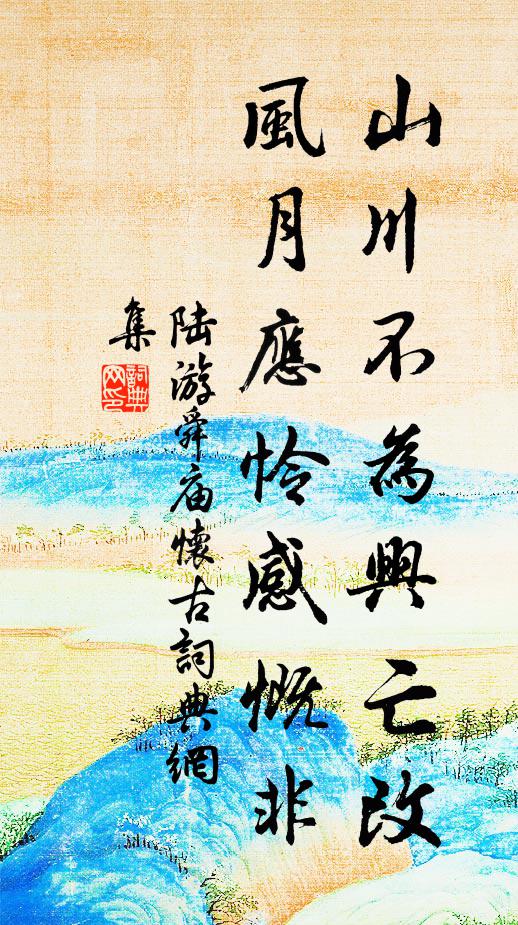 山川不為興亡改
風月應怜感慨非
陸游舜廟懷古詞典網
集
詞典
网印